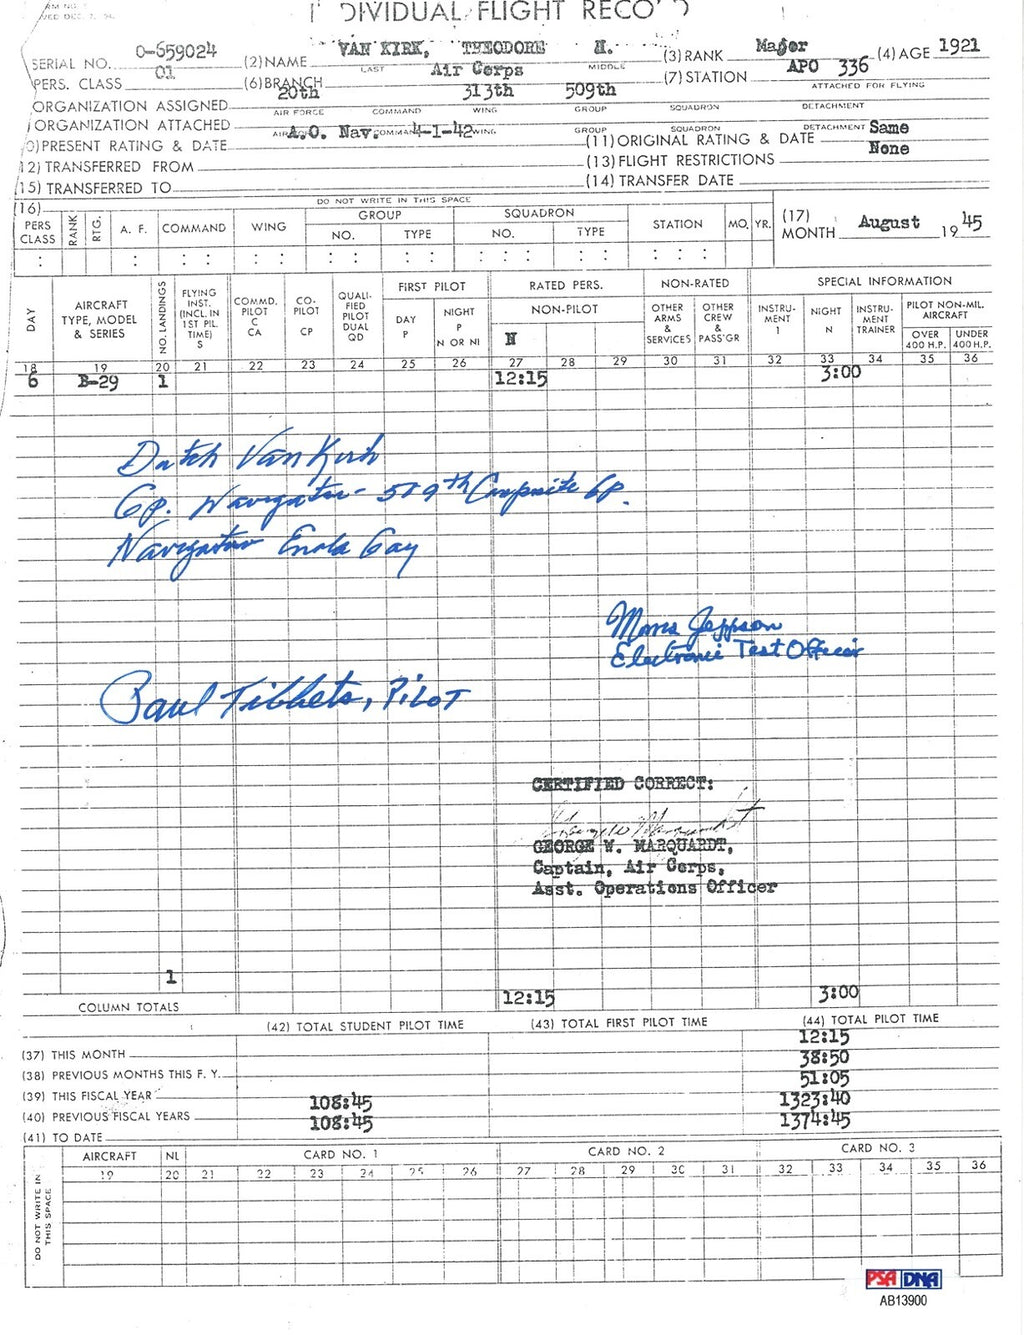 DIVIDUAL FLIGHT RECO D
SERIAL NO. O-659024 (2) NAME VAN KIRK, THEODORE H. (3) RANK Major (4) AGE 1921
LAST MIDDLE
PERS. CLASS 01 (6) BRANCH Air Corps (7) STATION APO 336
ORGANIZATION ASSIGNED 20th 313th 509th ATTACHED FOR FLYING
AIR FORCE COMMAND WING GROUP SQUADRON DETACHMENT
ORGANIZATION ATTACHED
AIR COMMAND WING GROUP SQUADRON DETACHMENT
0) PRESENT RATING & DATE A.O. Nav. 4-1-42 (11) ORIGINAL RATING & DATE Same
12) TRANSFERRED FROM (13) FLIGHT RESTRICTIONS None
(15) TRANSFERRED TO (14) TRANSFER DATE
(16) DO NOT WRITE IN THIS SPACE
PERS CLASS RANK RTG. A. F. COMMAND WING GROUP NO. TYPE SQUADRON NO. TYPE STATION MO. YR. (17) MONTH August 19 45
DAY AIRCRAFT TYPE, MODEL & SERIES NO. LANDINGS FLYING INST. (INCL. IN 1ST PIL. TIME) S COMMD. PILOT C CA CO-PILOT CP QUALI-FIED PILOT DUAL QD FIRST PILOT DAY P NIGHT P N OR NI RATED PERS. NON-PILOT N NON-RATED OTHER ARMS & SERVICES OTHER CREW & PASS'GR SPECIAL INFORMATION INSTRU-MENT I NIGHT N INSTRU-MENT TRAINER PILOT NON-MIL. AIRCRAFT OVER 400 H.P. UNDER 400 H.P.
18 19 20 21 22 23 24 25 26 27 28 29 30 31 32 33 34 35 36
6 B-29 1 12:15 3:00
Dutch VanKirk
Gp. Navigator - 509th Composite Gp.
Navigator Enola Gay
Morris Jeppson
Electronic Test Officer
Paul Tibbets, Pilot
CERTIFIED CORRECT:
George W Marquardt
GEORGE W. MARQUARDT,
Captain, Air Corps,
Asst. Operations Officer
1
COLUMN TOTALS 12:15 3:00
(42) TOTAL STUDENT PILOT TIME (43) TOTAL FIRST PILOT TIME (44) TOTAL PILOT TIME
(37) THIS MONTH 12:15
(38) PREVIOUS MONTHS THIS F. Y. 38:50
(39) THIS FISCAL YEAR 51:05
(40) PREVIOUS FISCAL YEARS 108:45 1323:40
(41) TO DATE 108:45 1374:45
DO NOT WRITE IN THIS SPACE
AIRCRAFT NL CARD NO. 1 CARD NO. 2 CARD NO. 3
19 20 21 22 23 24 25 26 27 28 29 30 31 32 33 34 35 36
PSA DNA
AB13900